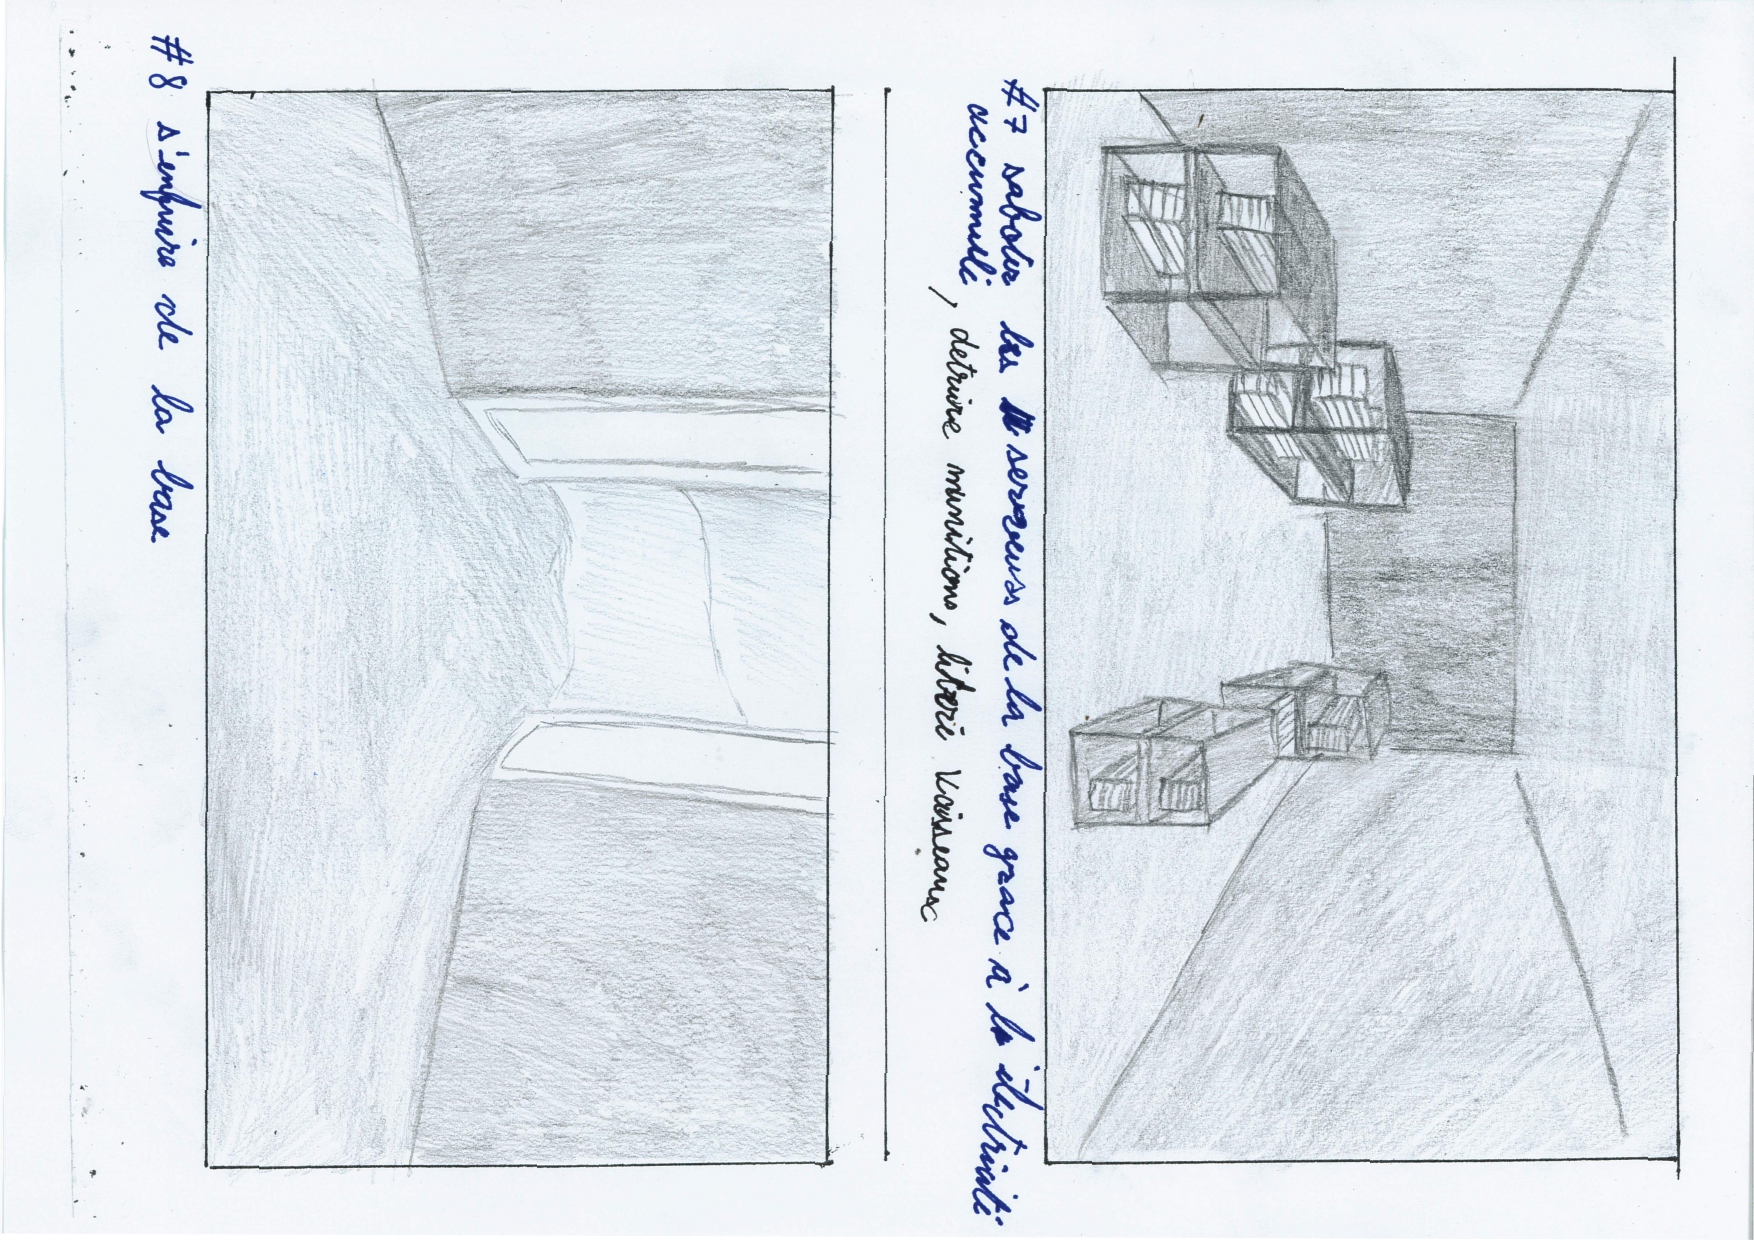 #7 saboter les serveurs de la base grace à l'électricité
accumulé
, detruire munitions, liberé vaisseaux
#8 s'enfuire de la base